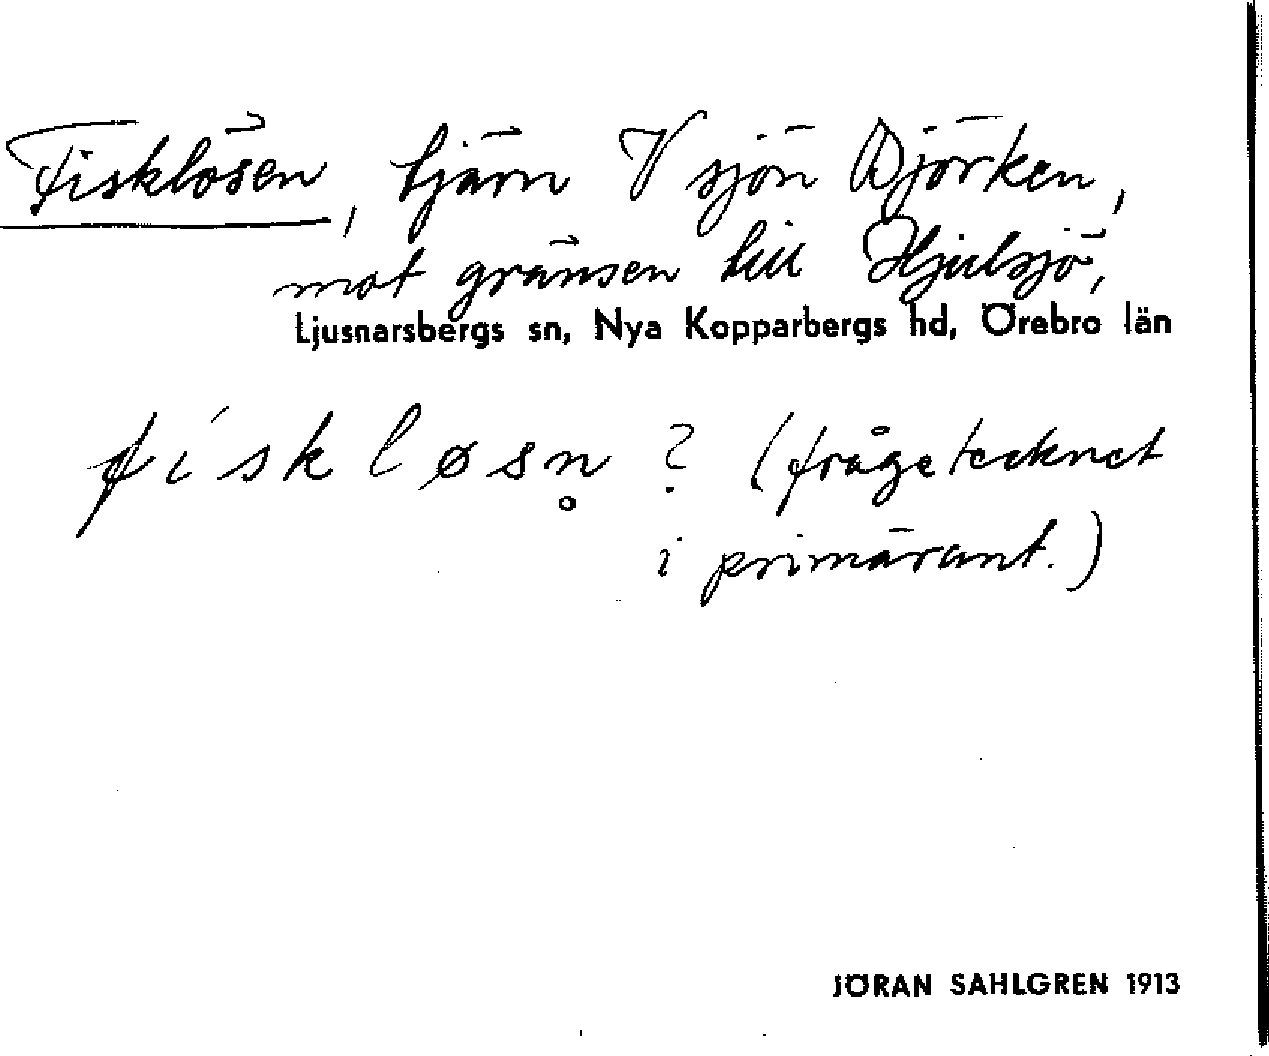 Fisklösen, tjärn V sjön Björken,
mot gränsen till Hjulsjö,
Ljusnarsbergs sn, Nya Kopparbergs hd, Örebro län
fiskløsn̥ ? (frågetecknet
i primäruppt.)
JÖRAN SAHLGREN 1913